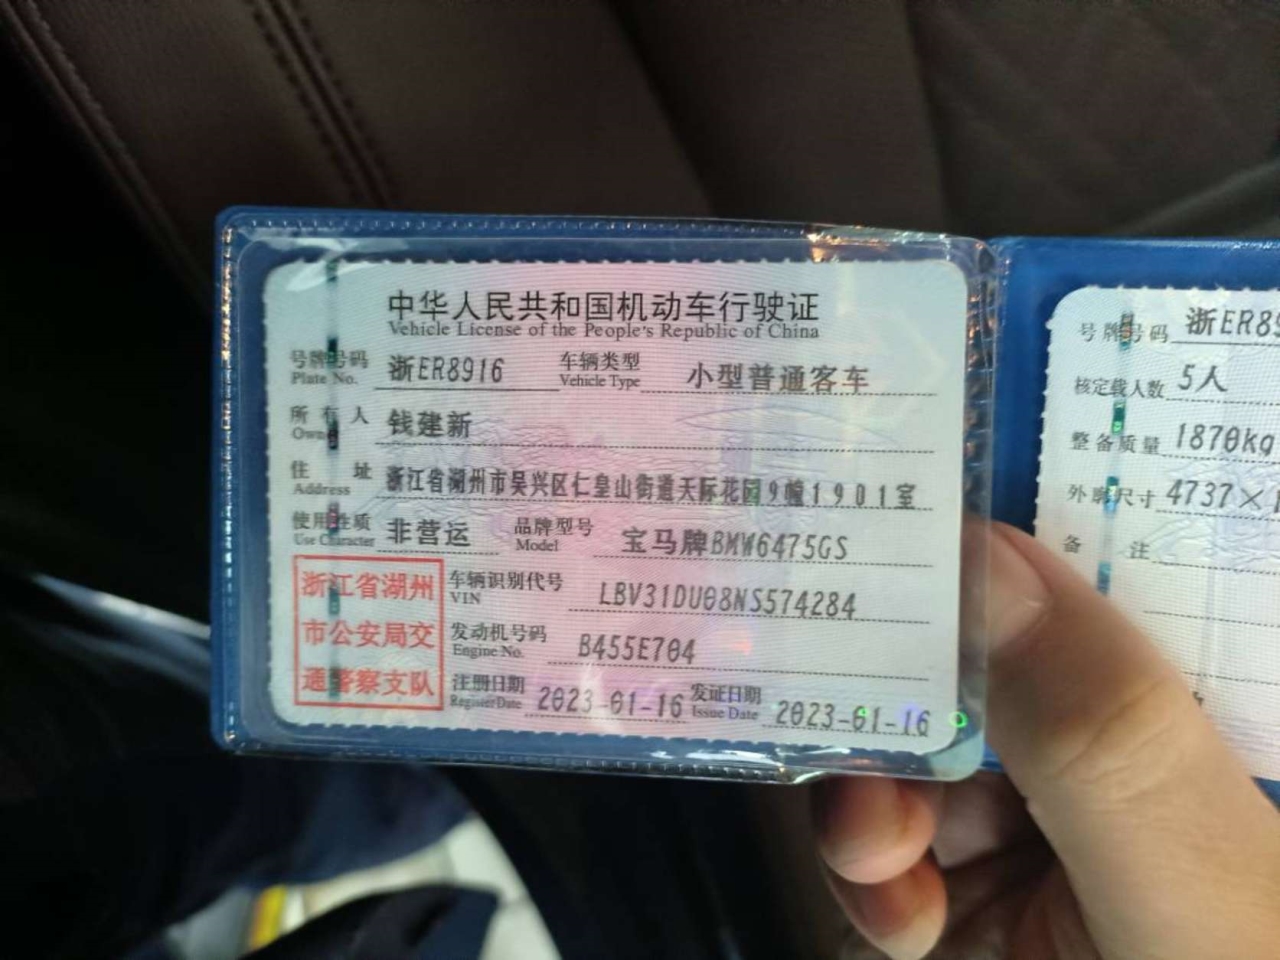 中华人民共和国机动车行驶证
Vehicle License of the People's Republic of China
号牌号码 浙ER8916 车辆类型 小型普通客车
Plate No. Vehicle Type
所有人 钱建新
Owner
住址 浙江省湖州市吴兴区仁皇山街道天际花园9幢1901室
Address
使用性质 非营运 品牌型号 宝马牌BMW6475GS
Use Character Model
浙江省湖州
市公安局交
通警察支队
车辆识别代号 LBV31DU08NS574284
VIN
发动机号码 B455E704
Engine No.
注册日期 2023-01-16 发证日期 2023-01-16
Register Date Issue Date
号牌号码 浙ER89
核定载人数 5人
整备质量 1870kg
外廓尺寸 4737×
备注